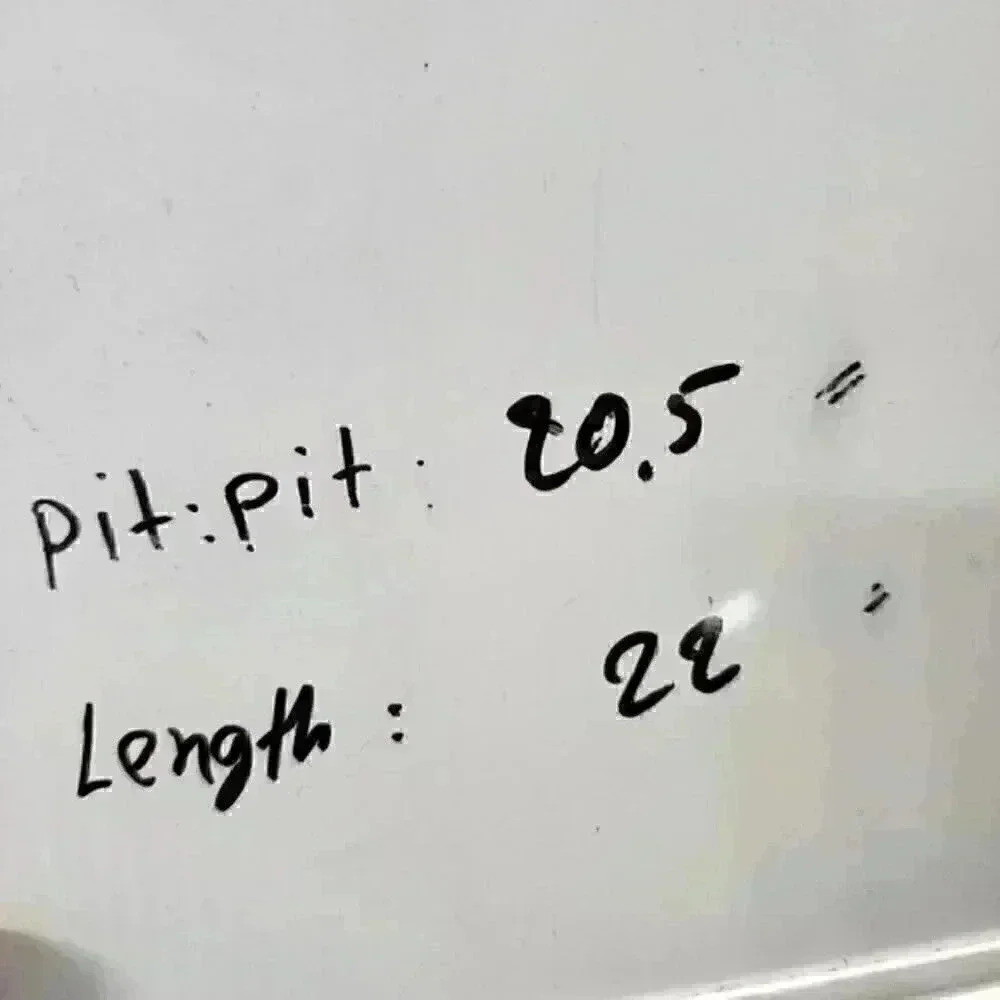 Pit:Pit: 20.5 "
Length: 22 "